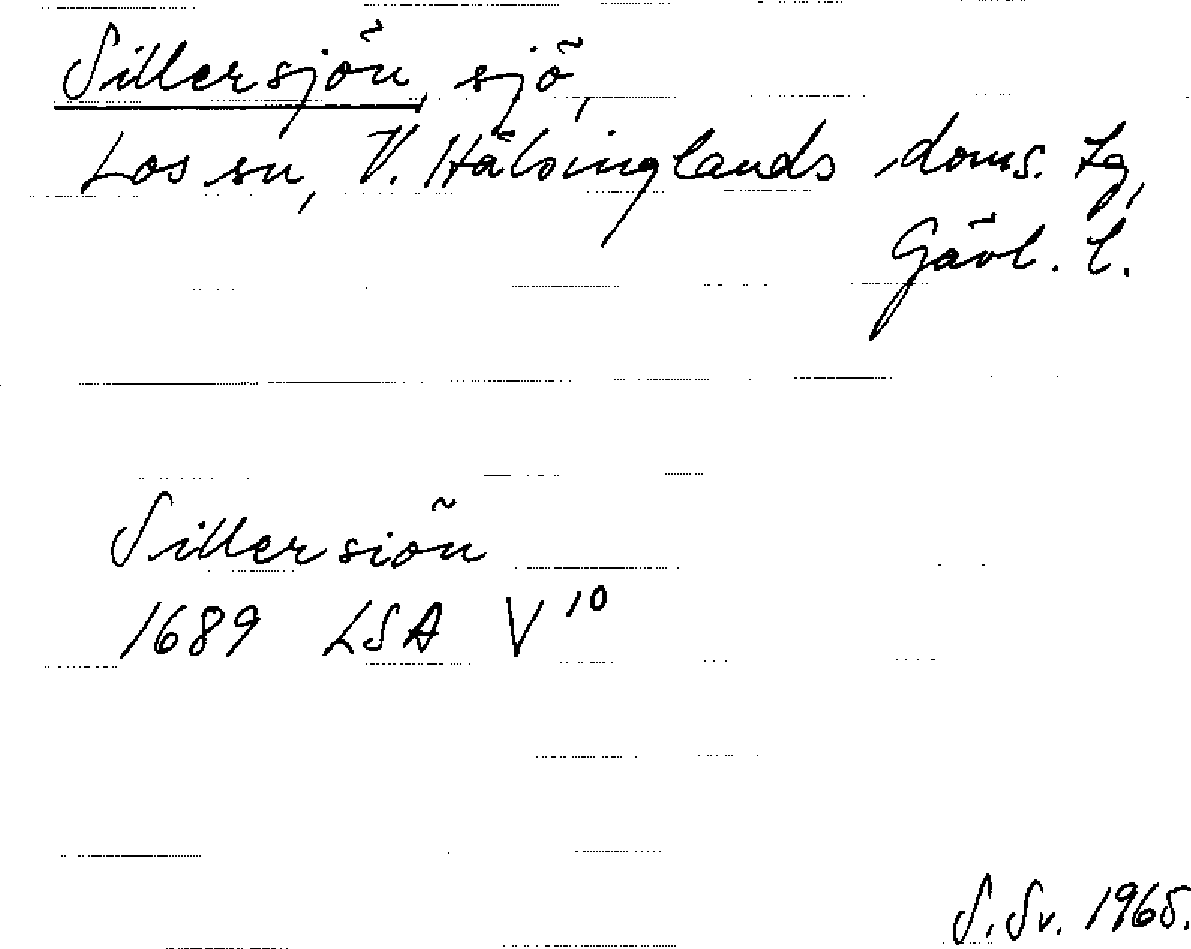 Sillersjön, sjö,
Los sn, V. Hälsinglands doms. tg,
Gävl. l.
Sillersiön
1689 LSA V¹⁰
S. Sv. 1965.